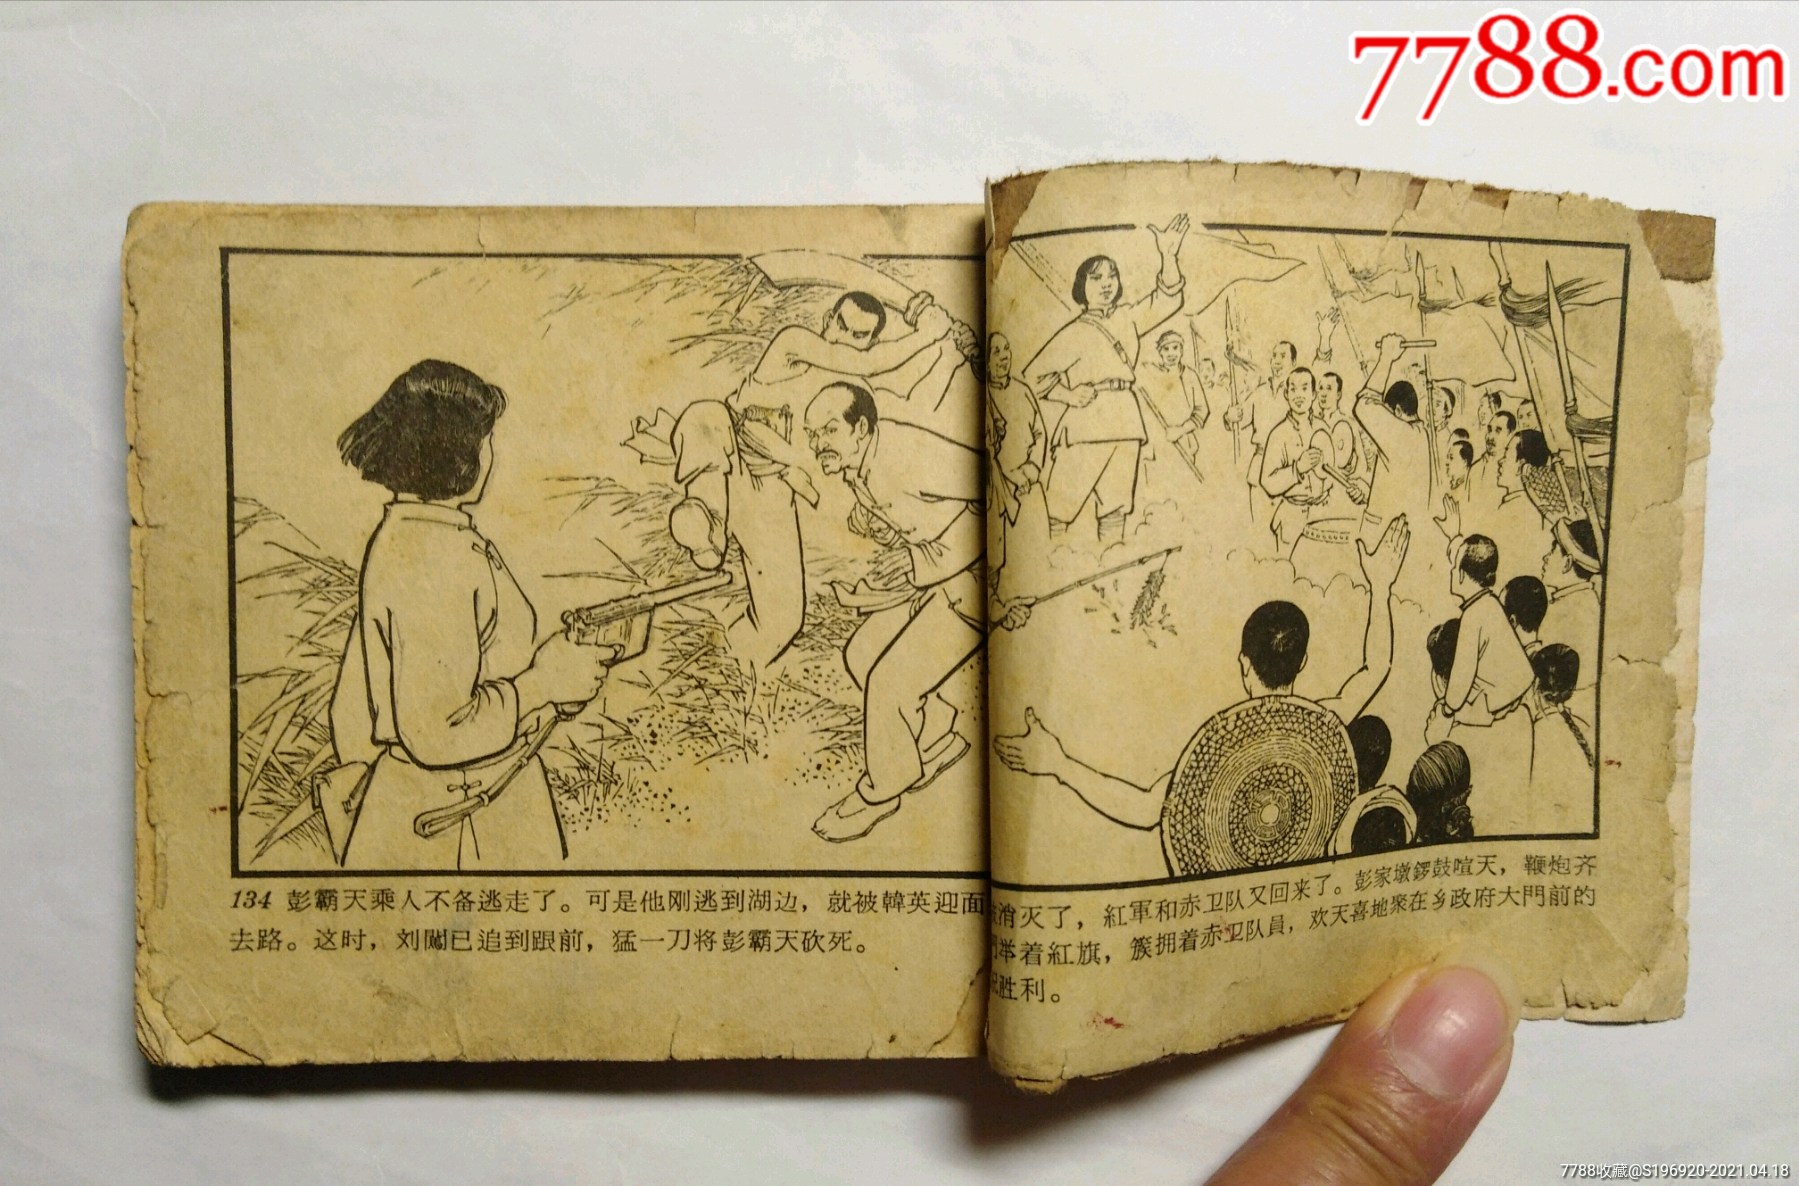 7788.com
134 彭霸天乘人不备逃走了。可是他刚逃到湖边，就被韓英迎面
去路。这时，刘闖已追到跟前，猛一刀将彭霸天砍死。
消灭了，紅軍和赤卫队又回来了。彭家墩鑼鼓喧天，鞭炮齐
举着紅旗，簇拥着赤卫队員，欢天喜地聚在乡政府大門前的
胜利。
7788收藏@S196920-2021.04.18